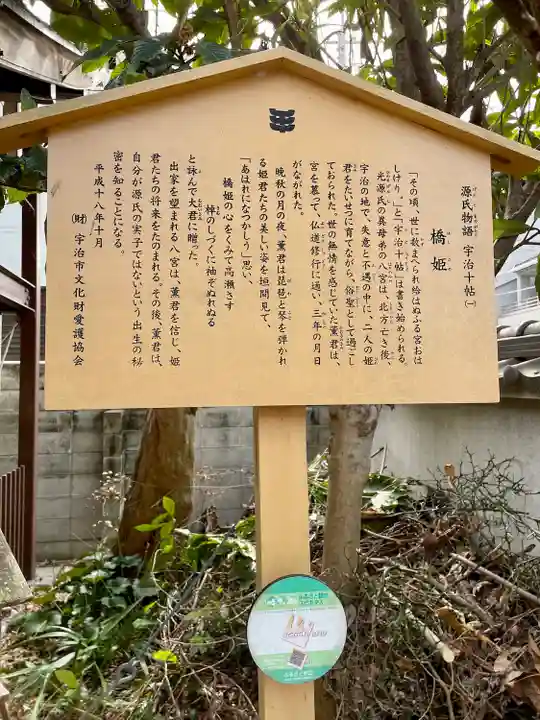 源氏物語 宇治十帖(一)
橋姫
「その頃、世に数まへられ給はぬふる宮おは
しけり。」と『宇治十帖』は書き始められる。
光源氏の異母弟の八宮は、北方亡き後、
宇治の地で、失意と不遇の中に、二人の姫
君をたいせつに育てながら、俗聖として過ごし
ておられた。世の無情を感じていた薫君は、
宮を慕って、仏道修行に通い、三年の月日
がながれた。
晩秋の月の夜、薫君は琵琶と琴を弾かれ
る姫君たちの美しい姿を垣間見て、
「あはれになつかしう」思い、
橋姫の心をくみて高瀬さす
棹のしづくに袖ぞぬれぬる
と詠んで大君に贈った。
出家を望まれる八宮は、薫君を信じ、姫
君たちの将来をたのまれる。その後、薫君は、
自分が源氏の実子ではないという出生の秘
密を知ることになる。
平成十八年十月
(財)宇治市文化財愛護協会